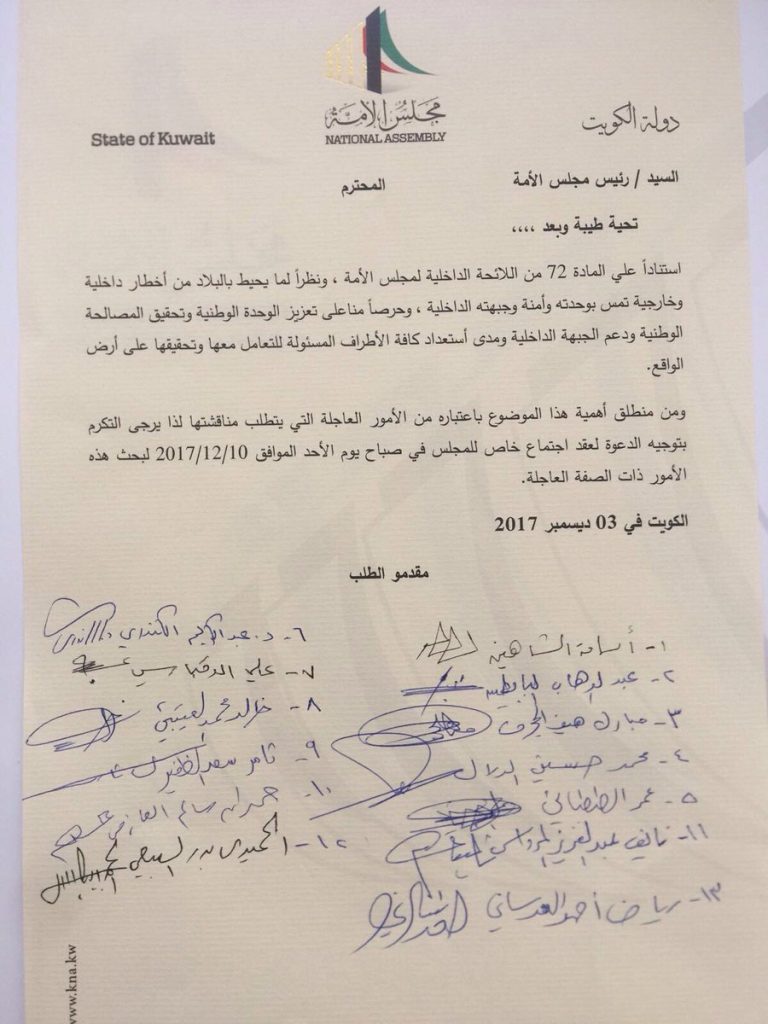 State of Kuwait
مجلس الأمة
NATIONAL ASSEMBLY
دولة الكويت
السيد / رئيس مجلس الأمة المحترم
تحية طيبة وبعد ،،،،
استناداً علي المادة 72 من اللائحة الداخلية لمجلس الأمة ، ونظراً لما يحيط بالبلاد من أخطار داخلية
وخارجية تمس بوحدته وأمنة وجبهته الداخلية ، وحرصاً مناعلى تعزيز الوحدة الوطنية وتحقيق المصالحة
الوطنية ودعم الجبهة الداخلية ومدى أستعداد كافة الأطراف المسئولة للتعامل معها وتحقيقها على أرض
الواقع.
ومن منطلق أهمية هذا الموضوع باعتباره من الأمور العاجلة التي يتطلب مناقشتها لذا يرجى التكرم
بتوجيه الدعوة لعقد اجتماع خاص للمجلس في صباح يوم الأحد الموافق 2017/12/10 لبحث هذه
الأمور ذات الصفة العاجلة.
الكويت في 03 ديسمبر 2017
مقدمو الطلب
١- أسامة الشاهين
٢- عبدالوهاب البابطين
٣- مبارك هيف الحجرف
٤- محمد حسين الدلال
٥- عمر الطبطبائي
١١- نايف عبدالعزيز المرداس
١٣- رياض أحمد العدساني
٦- د. عبدالكريم الكندري
٧- علي الدقباسي
٨- خالد محمد العتيبي
٩- ثامر سعد الظفيري
١٠- حمدان سالم العازمي
١٢- الحميدي بدر السبيعي
www.kna.kw